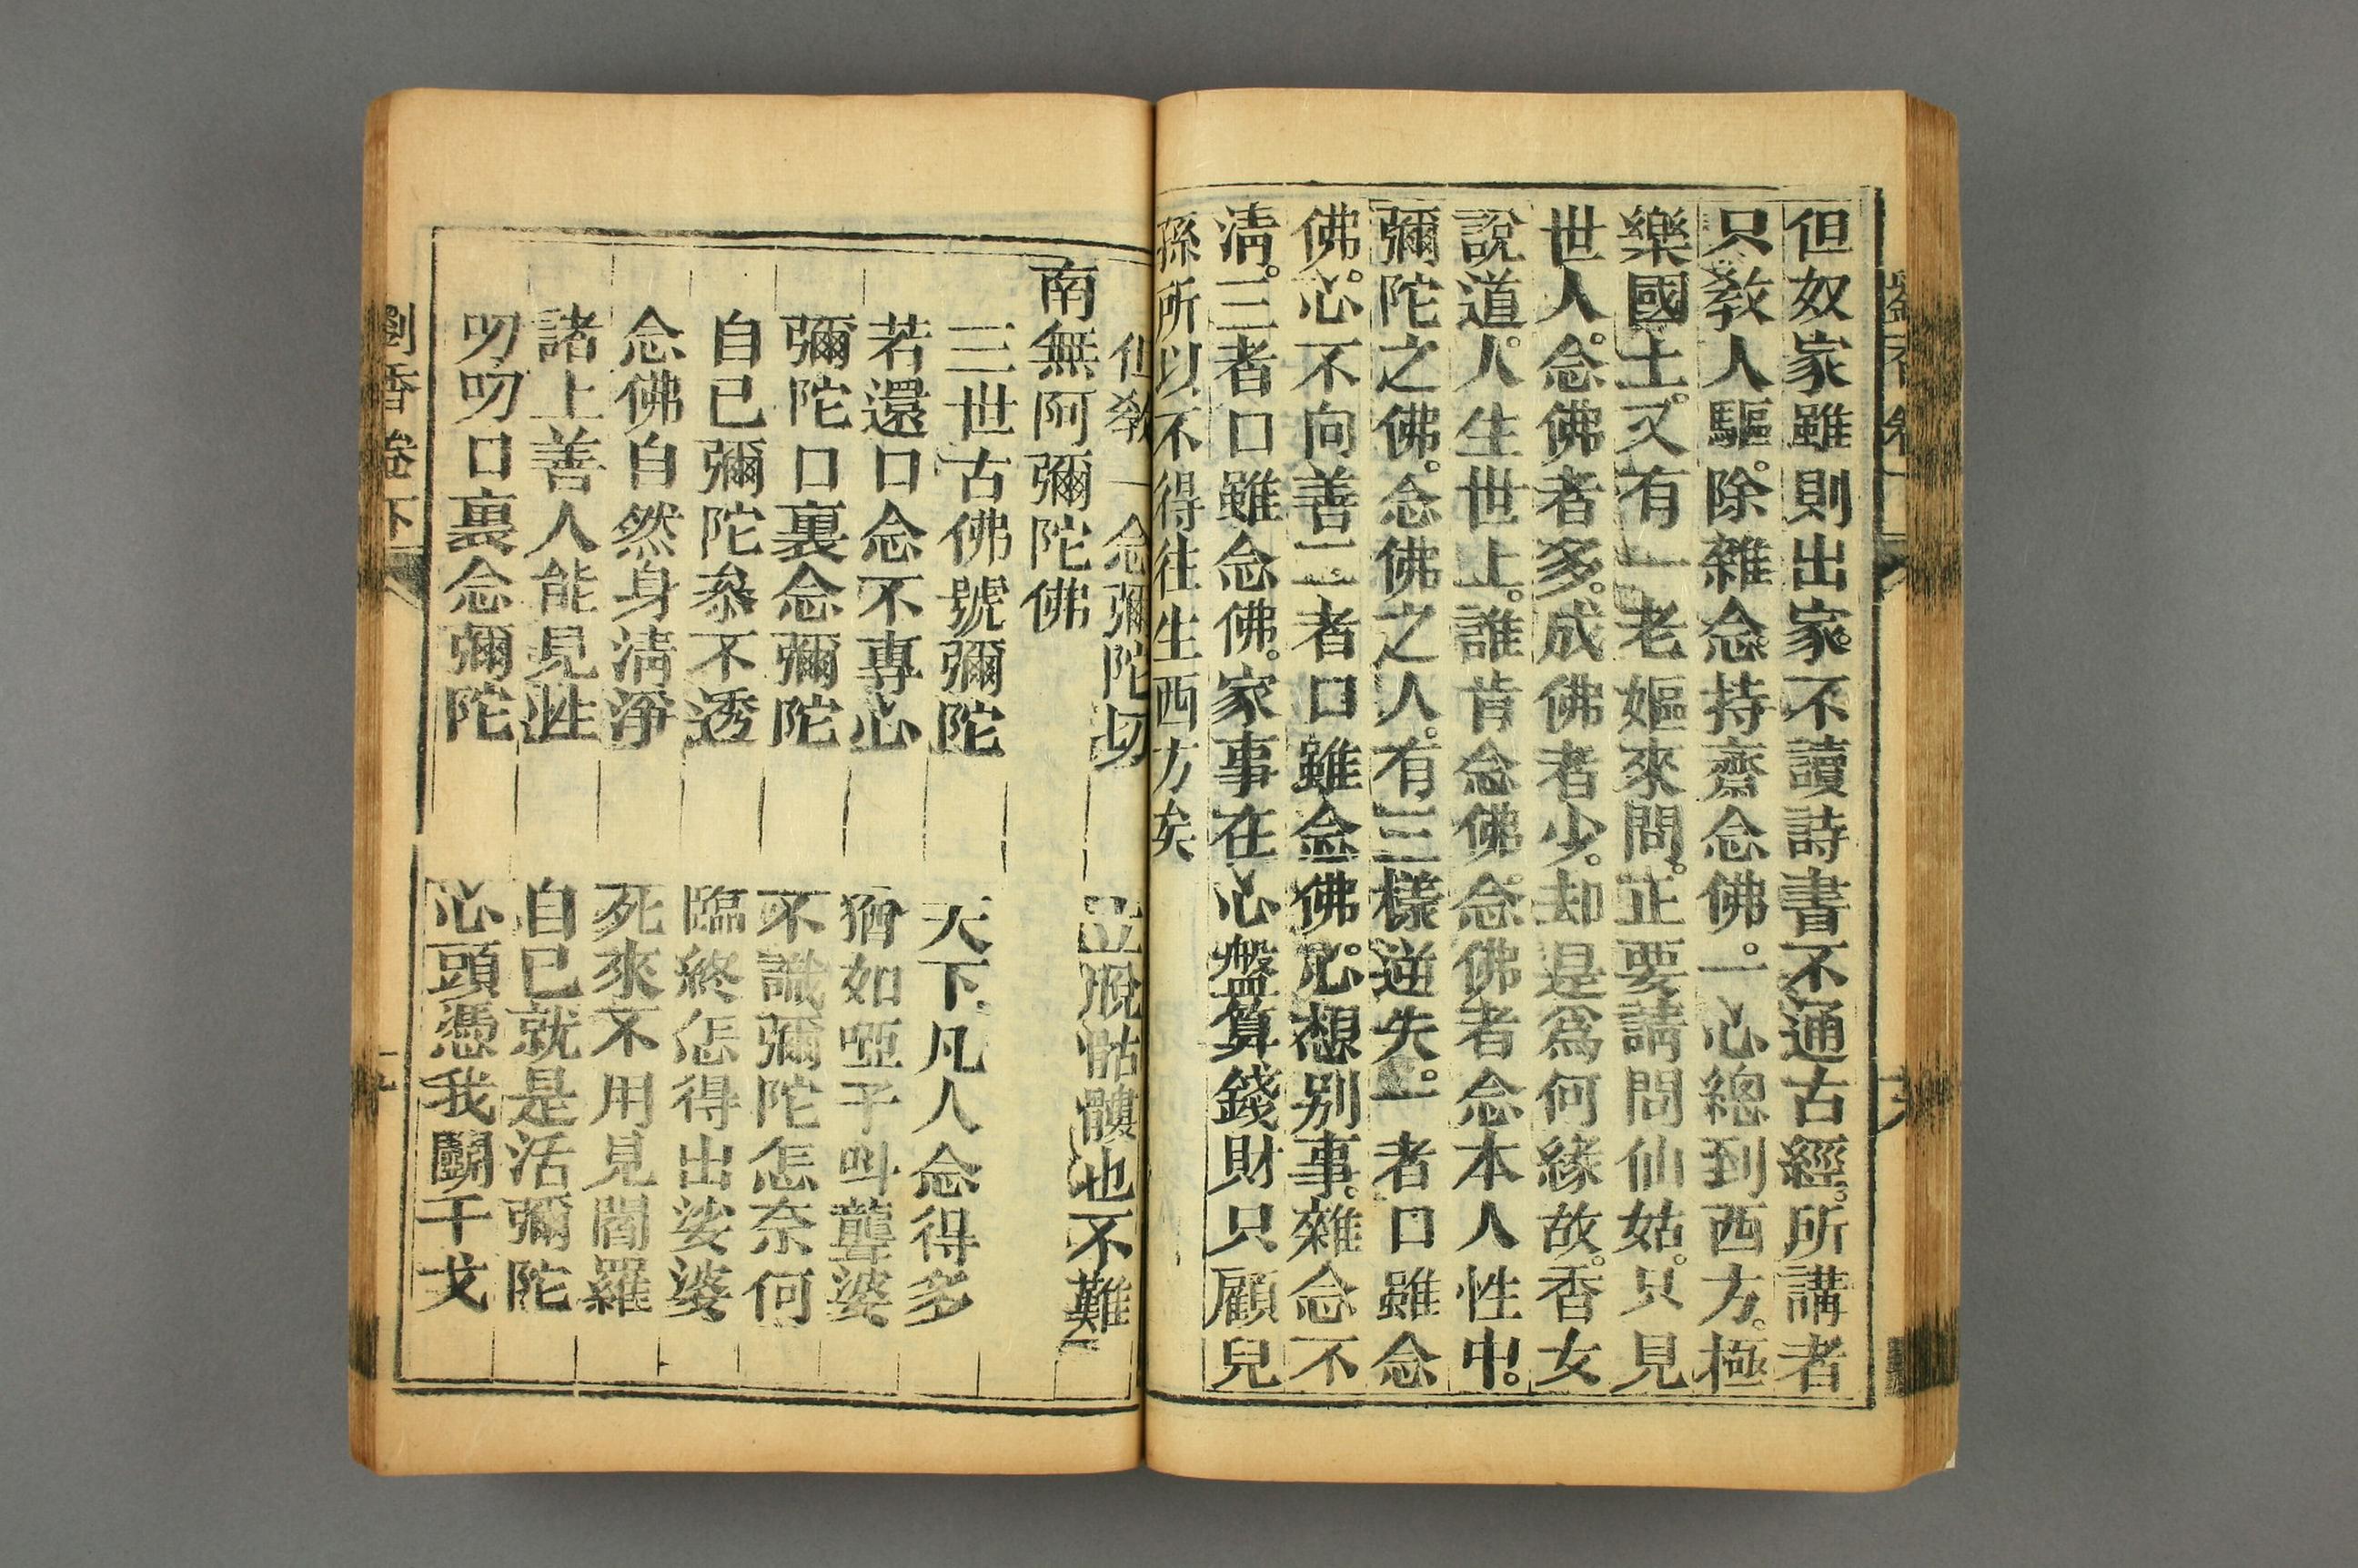 但奴家雖則出家。不讀詩書不通古經。所講者
只教人驅。除雜念。持齋念佛。一心總到西方。極
樂國土。又有一老嫗來問。正要請問仙姑。只見
世人。念佛者多。成佛者少。却是爲何緣故。香女
說道。人生世上。誰肯念佛。念佛者念本人性中。
彌陀之佛。念佛之人。有三樣逆失。一者口雖念
佛。心不向善二者口雖念佛。心想别事。雜念不
淸。三者口雖念佛。家事在心盤算錢財只顧兒
孫所以不得往生西方矣
但教一念彌陀切 立脫骷髏也不難
南無阿彌陀佛
三世古佛號彌陀 天下凡人念得多
若還口念不專心 猶如啞子叫聾婆
彌陀口裏念彌陀 不識彌陀怎奈何
自已彌陀叅不透 臨終怎得出娑婆
念佛自然身淸淨 死來不用見閻羅
諸上善人能見性 自已就是活彌陀
叨叨口裏念彌陀 心頭憑我鬭干戈
劉香 卷下 十九